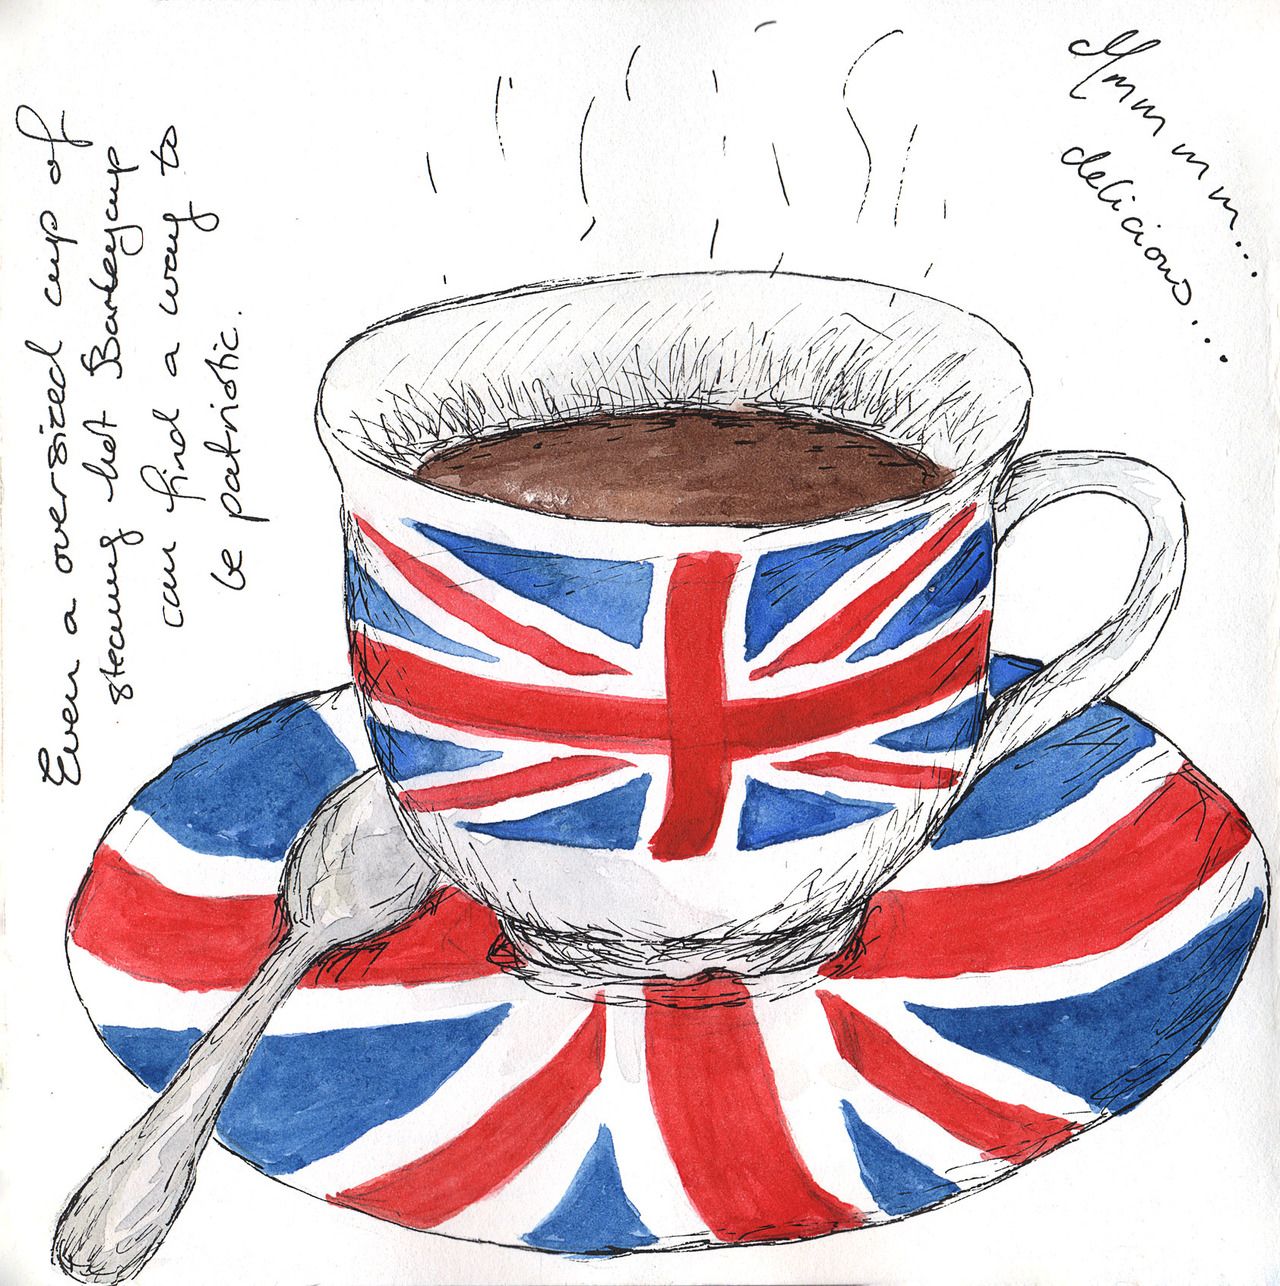 Even a oversized cup of
steaming hot Barleycup
can find a way to
be patriotic.
Mmmmmm...
delicious...